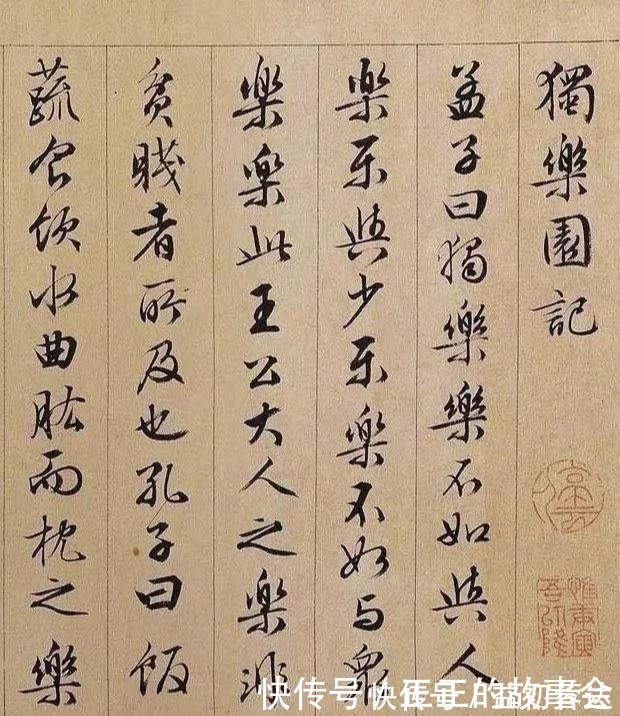 獨樂園記
孟子曰獨樂樂不如與人
樂樂與少樂樂不如与衆
樂樂此王公大人之樂非
貧賤者所及也孔子曰飯
蔬食飲水曲肱而枕之樂
快传号